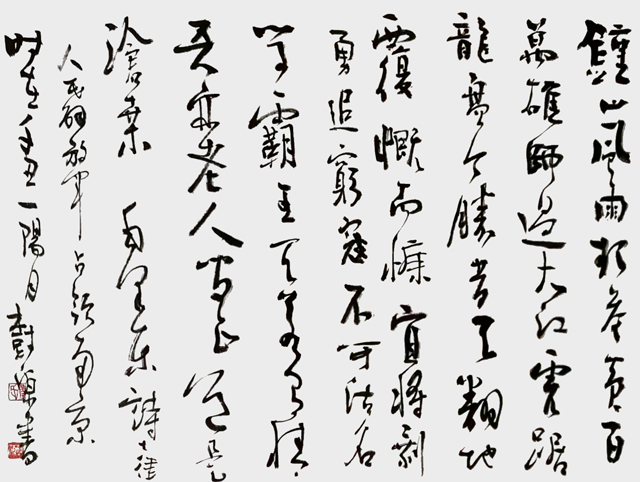 鍾山風雨起蒼黄百
萬雄師過大江虎踞
龍盘今勝昔天翻地
覆慨而慷宜將剩
勇追窮寇不可沽名
学霸王天若有情
天亦老人间正道是
滄桑 毛泽东詩七律
人民解放军占领南京
时在辛丑一陽月樹書